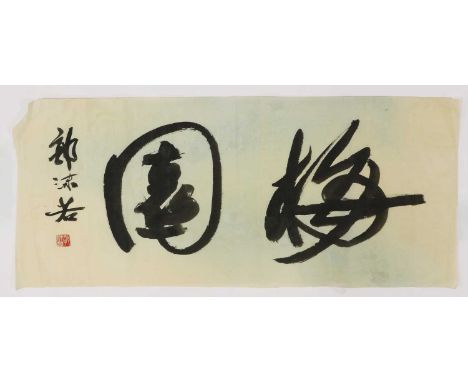 梅園
郭沫若